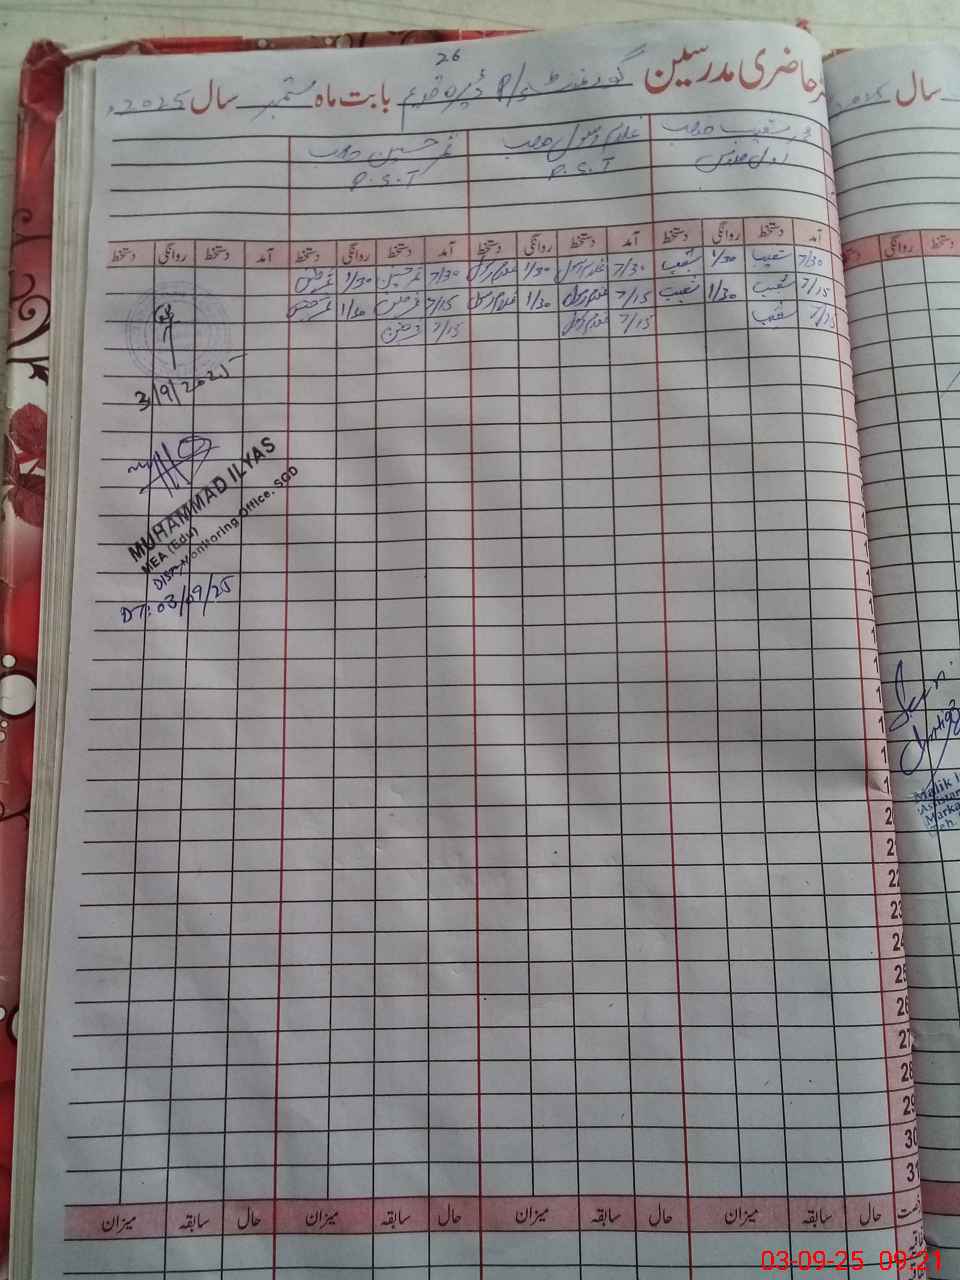 حاضری مدرسین گورنمنٹ P/S ڈیرہ قدیم بابت ماہ ستمبر سال 2025ء
26
سال 2025
شعیب صاحب غلام رسول صاحب حسین صاحب
P.S.T P.S.T
آمد دستخط روانگی دستخط آمد دستخط روانگی دستخط آمد دستخط روانگی دستخط آمد دستخط روانگی دستخط
روانگی دستخط
7/30 شعیب 1/30 شعیب 7/30 غلام رسول 1/30 غلام رسول 7/30 1/30
7/15 شعیب 1/30 شعیب 7/15 غلام رسول 1/30 غلام رسول 7/15 1/30
7/15 شعیب 7/15 غلام رسول 7/15
3/9/2025
MUHAMMAD ILYAS
MEA (Edu)
Distt. Monitoring Office. SGD
DT: 03/09/25
Malik
Marka
Teh.
21
22
23
24
25
26
27
28
29
30
31
حال سابقہ میزان حال سابقہ میزان حال سابقہ میزان حال سابقہ میزان
03-09-25 09:21